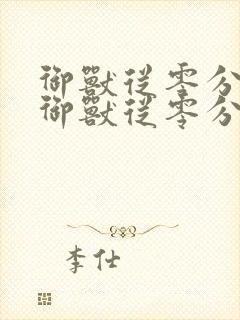 御獸從零分
御獸從零分
李仕